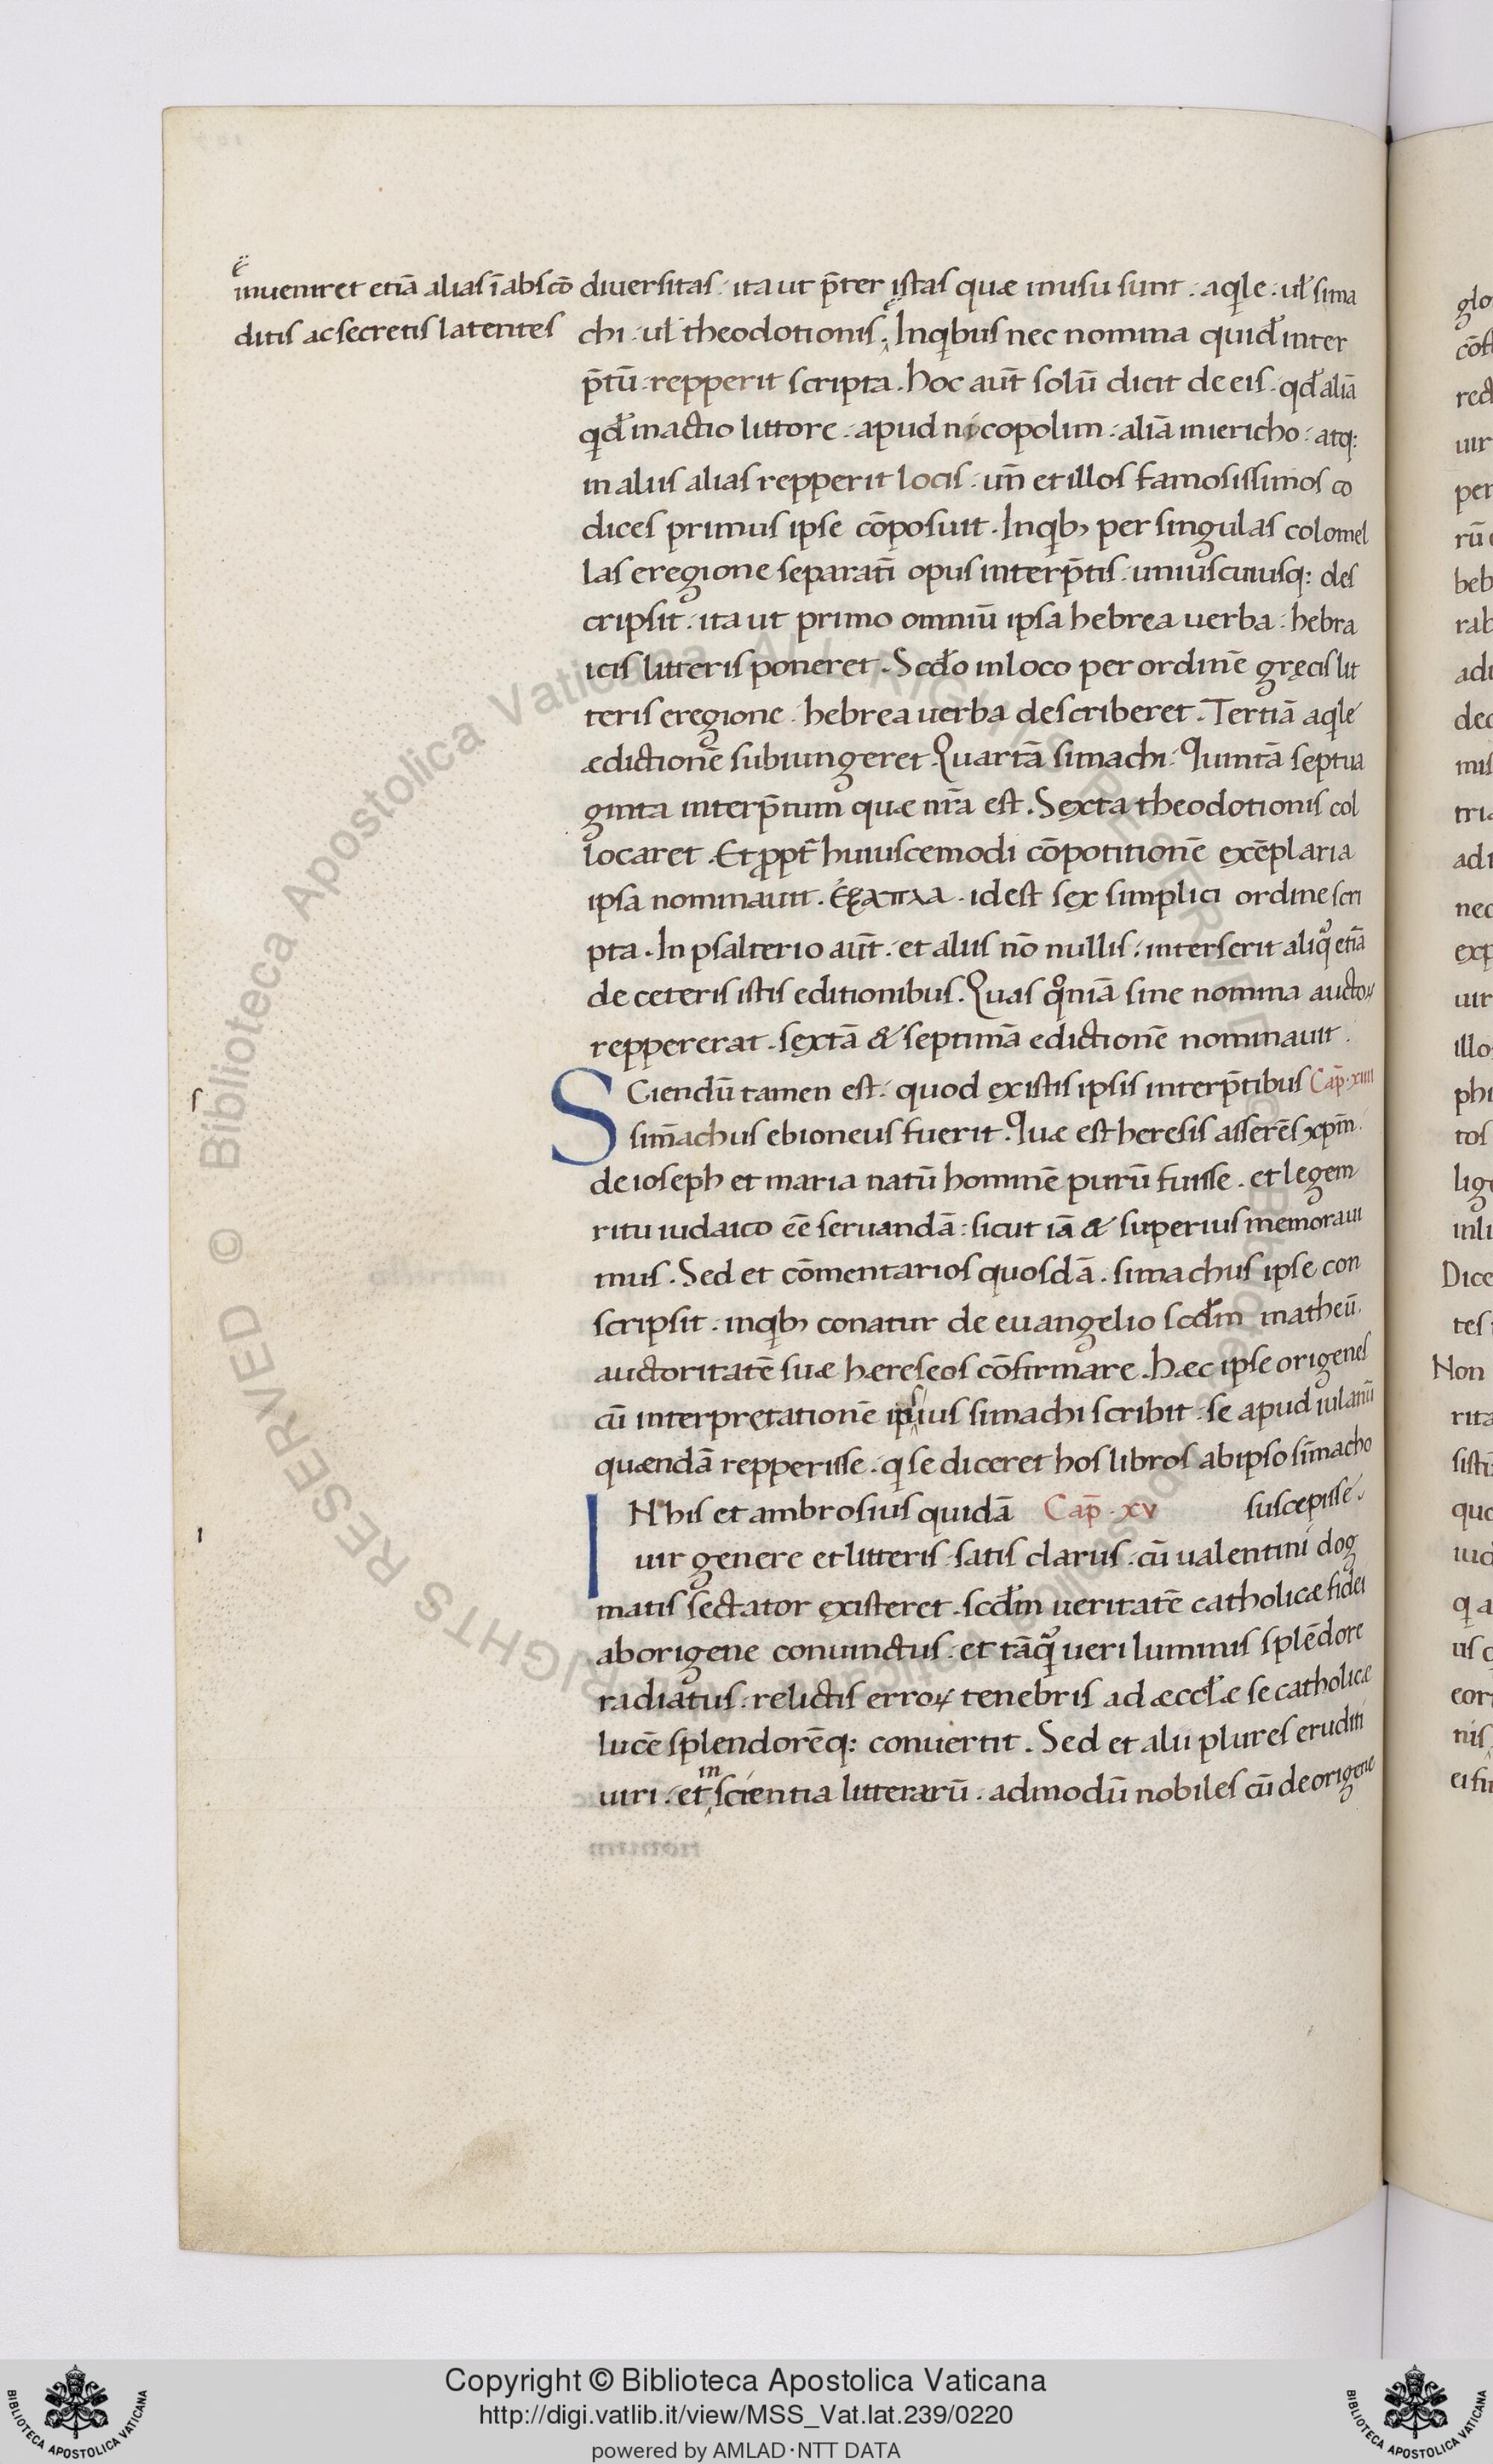 inueniret etiā alias ī abscō
ditis ac secretis latentes
diuersitas · ita ut p̄ter istas quæ in usu sunt · aqile · ul̄ sima
chi · ul̄ theodotionis · In qibus nec nomina quid̄ inter
p̄tū · repperit scripta · hoc aut̄ solū dicit de eis · qd̄ aliā
qd̄ in actio littore · apud nicopolim · aliā in iericho · atq:
in aliis alias repperit locis · un̄ et illos famosissimos co
dices primus ipse cōposuit · In qib; per singulas colomel
las e regione separatī opus interp̄tis · uniuscuiusq: des
cripsit · ita ut primo omniū ipsa hebrea uerba · hebra
icis litteris poneret · Scd̄o in loco per ordinē gręcis lit
teris e regione · hebrea uerba describeret · Tertiā aqile
ædictionē subiungeret · Quartā simachi · Quintā septua
ginta interp̄tum quæ nr̄a est · Sexta theodotionis col
locaret · Et ꝓpt̄ huiuscemodi cōpotitionē exēplaria
ipsa nominauit · ἑξαπλα · id est sex simplici ordine scri
pta · In psalterio aut̄ · et aliis nō nullis · interserit aliq̊ etiā
de ceteris istis editionibus · Quas qo̅niā sine nomina auctoꝝ
reppererat · sextā & septimā edictionē nominauit ·
Sciendū tamen est · quod ex istis ipsis interp̄tibus Cap̄ · xiiii
sim̄achus ebioneus fuerit · Quæ est heresis asserēs xp̄m
de ioseph et maria natū hominē purū fuisse · et legem
ritu iudaico eē seruandā · sicut iā & superius memoraui
mus · Sed et cōmentarios quosdā · simachus ipse con
scripsit · in qib; conatur de euangelio scd̄m matheū ·
auctoritatē suæ hæreseos cōfirmare · hæc ipse origenes
cū interpretationē ipsius simachi scribit · se apud iulianū
quændā repperisse · qi se diceret hos libros ab ipso sim̄acho
suscepisse ·
IN his et ambrosius quidā Cap̄ · xv
uir genere et litteris · satis clarus · cū ualentini dog
matis sectator existeret · scd̄m ueritatē catholicæ fidei
ab origene conuinctus · et tāq̊ ueri luminis splēdore
radiatus · relictis erroꝝ tenebris ad æccl̄æ se catholicæ
lucē splendorēq: conuertit · Sed et alii plures eruditi
uiri · et in scientia litterarū · admodū nobiles cū de origene
Copyright © Biblioteca Apostolica Vaticana
http://digi.vatlib.it/view/MSS_Vat.lat.239/0220
powered by AMLAD·NTT DATA